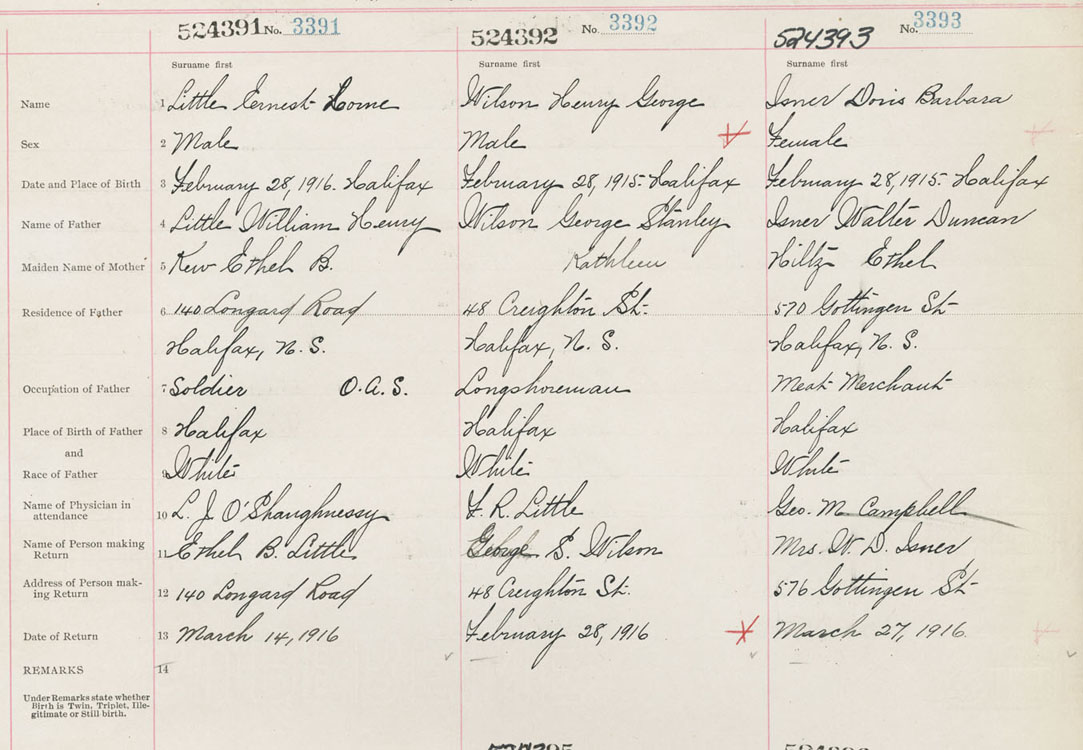 524391 No. 3391 524392 No. 3392 524393 No. 3393
Surname first Surname first Surname first
Name 1 Little Ernest Lorne Wilson Henry George Isner Doris Barbara
Sex 2 Male Male Female
Date and Place of Birth 3 February 28, 1916. Halifax February 28, 1915. Halifax February 28, 1915. Halifax
Name of Father 4 Little William Henry Wilson George Stanley Isner Walter Duncan
Maiden Name of Mother 5 Kew Ethel B. Kathleen Hiltz Ethel
Residence of Father 6 140 Longard Road 48 Creighton St. 570 Gottingen St
Halifax, N. S. Halifax, N. S. Halifax, N. S.
Occupation of Father 7 Soldier O.A.S. Longshoreman Meat Merchant
Place of Birth of Father 8 Halifax Halifax Halifax
and
Race of Father 9 White White White
Name of Physician in
attendance 10 L. J. O'Shaughnessy F. R. Little Geo. M Campbell
Name of Person making
Return 11 Ethel B. Little George S. Wilson Mrs. W. D. Isner
Address of Person mak-
ing Return 12 140 Longard Road 48 Creighton St. 576 Gottingen St
Date of Return 13 March 14, 1916 February 28, 1916 March 27, 1916.
REMARKS 14
Under Remarks state whether
Birth is Twin, Triplet, Ille-
gitimate or Still birth.